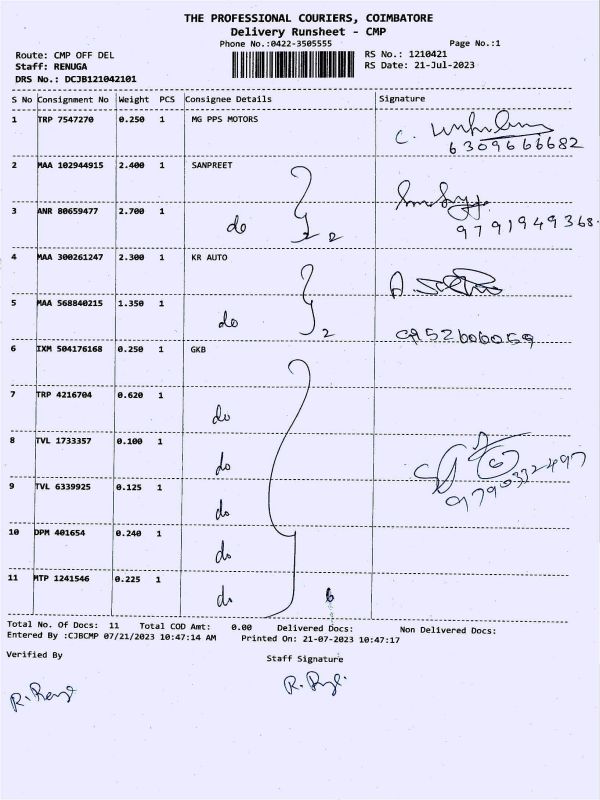 THE PROFESSIONAL COURIERS, COIMBATORE
Delivery Runsheet - CMP
Phone No.:0422-3505555 Page No.:1
Route: CMP OFF DEL RS No.: 1210421
Staff: RENUGA RS Date: 21-Jul-2023
DRS No.: DCJB121042101
S No Consignment No Weight PCS Consignee Details Signature
1 TRP 7547270 0.250 1 MG PPS MOTORS
6309666682
2 MAA 102944915 2.400 1 SANPREET
3 ANR 80659477 2.700 1 do 2
9791949368.
4 MAA 300261247 2.300 1 KR AUTO
5 MAA 568840215 1.350 1 do 2
6 IXM 504176168 0.250 1 GKB
7 TRP 4216704 0.620 1 do
8 TVL 1733357 0.100 1 do
9 TVL 6339925 0.125 1 do
10 DPM 401654 0.240 1 do
11 MTP 1241546 0.225 1 do 6
Total No. Of Docs: 11 Total COD Amt: 0.00 Delivered Docs: Non Delivered Docs:
Entered By :CJBCMP 07/21/2023 10:47:14 AM Printed On: 21-07-2023 10:47:17
Verified By
Staff Signature